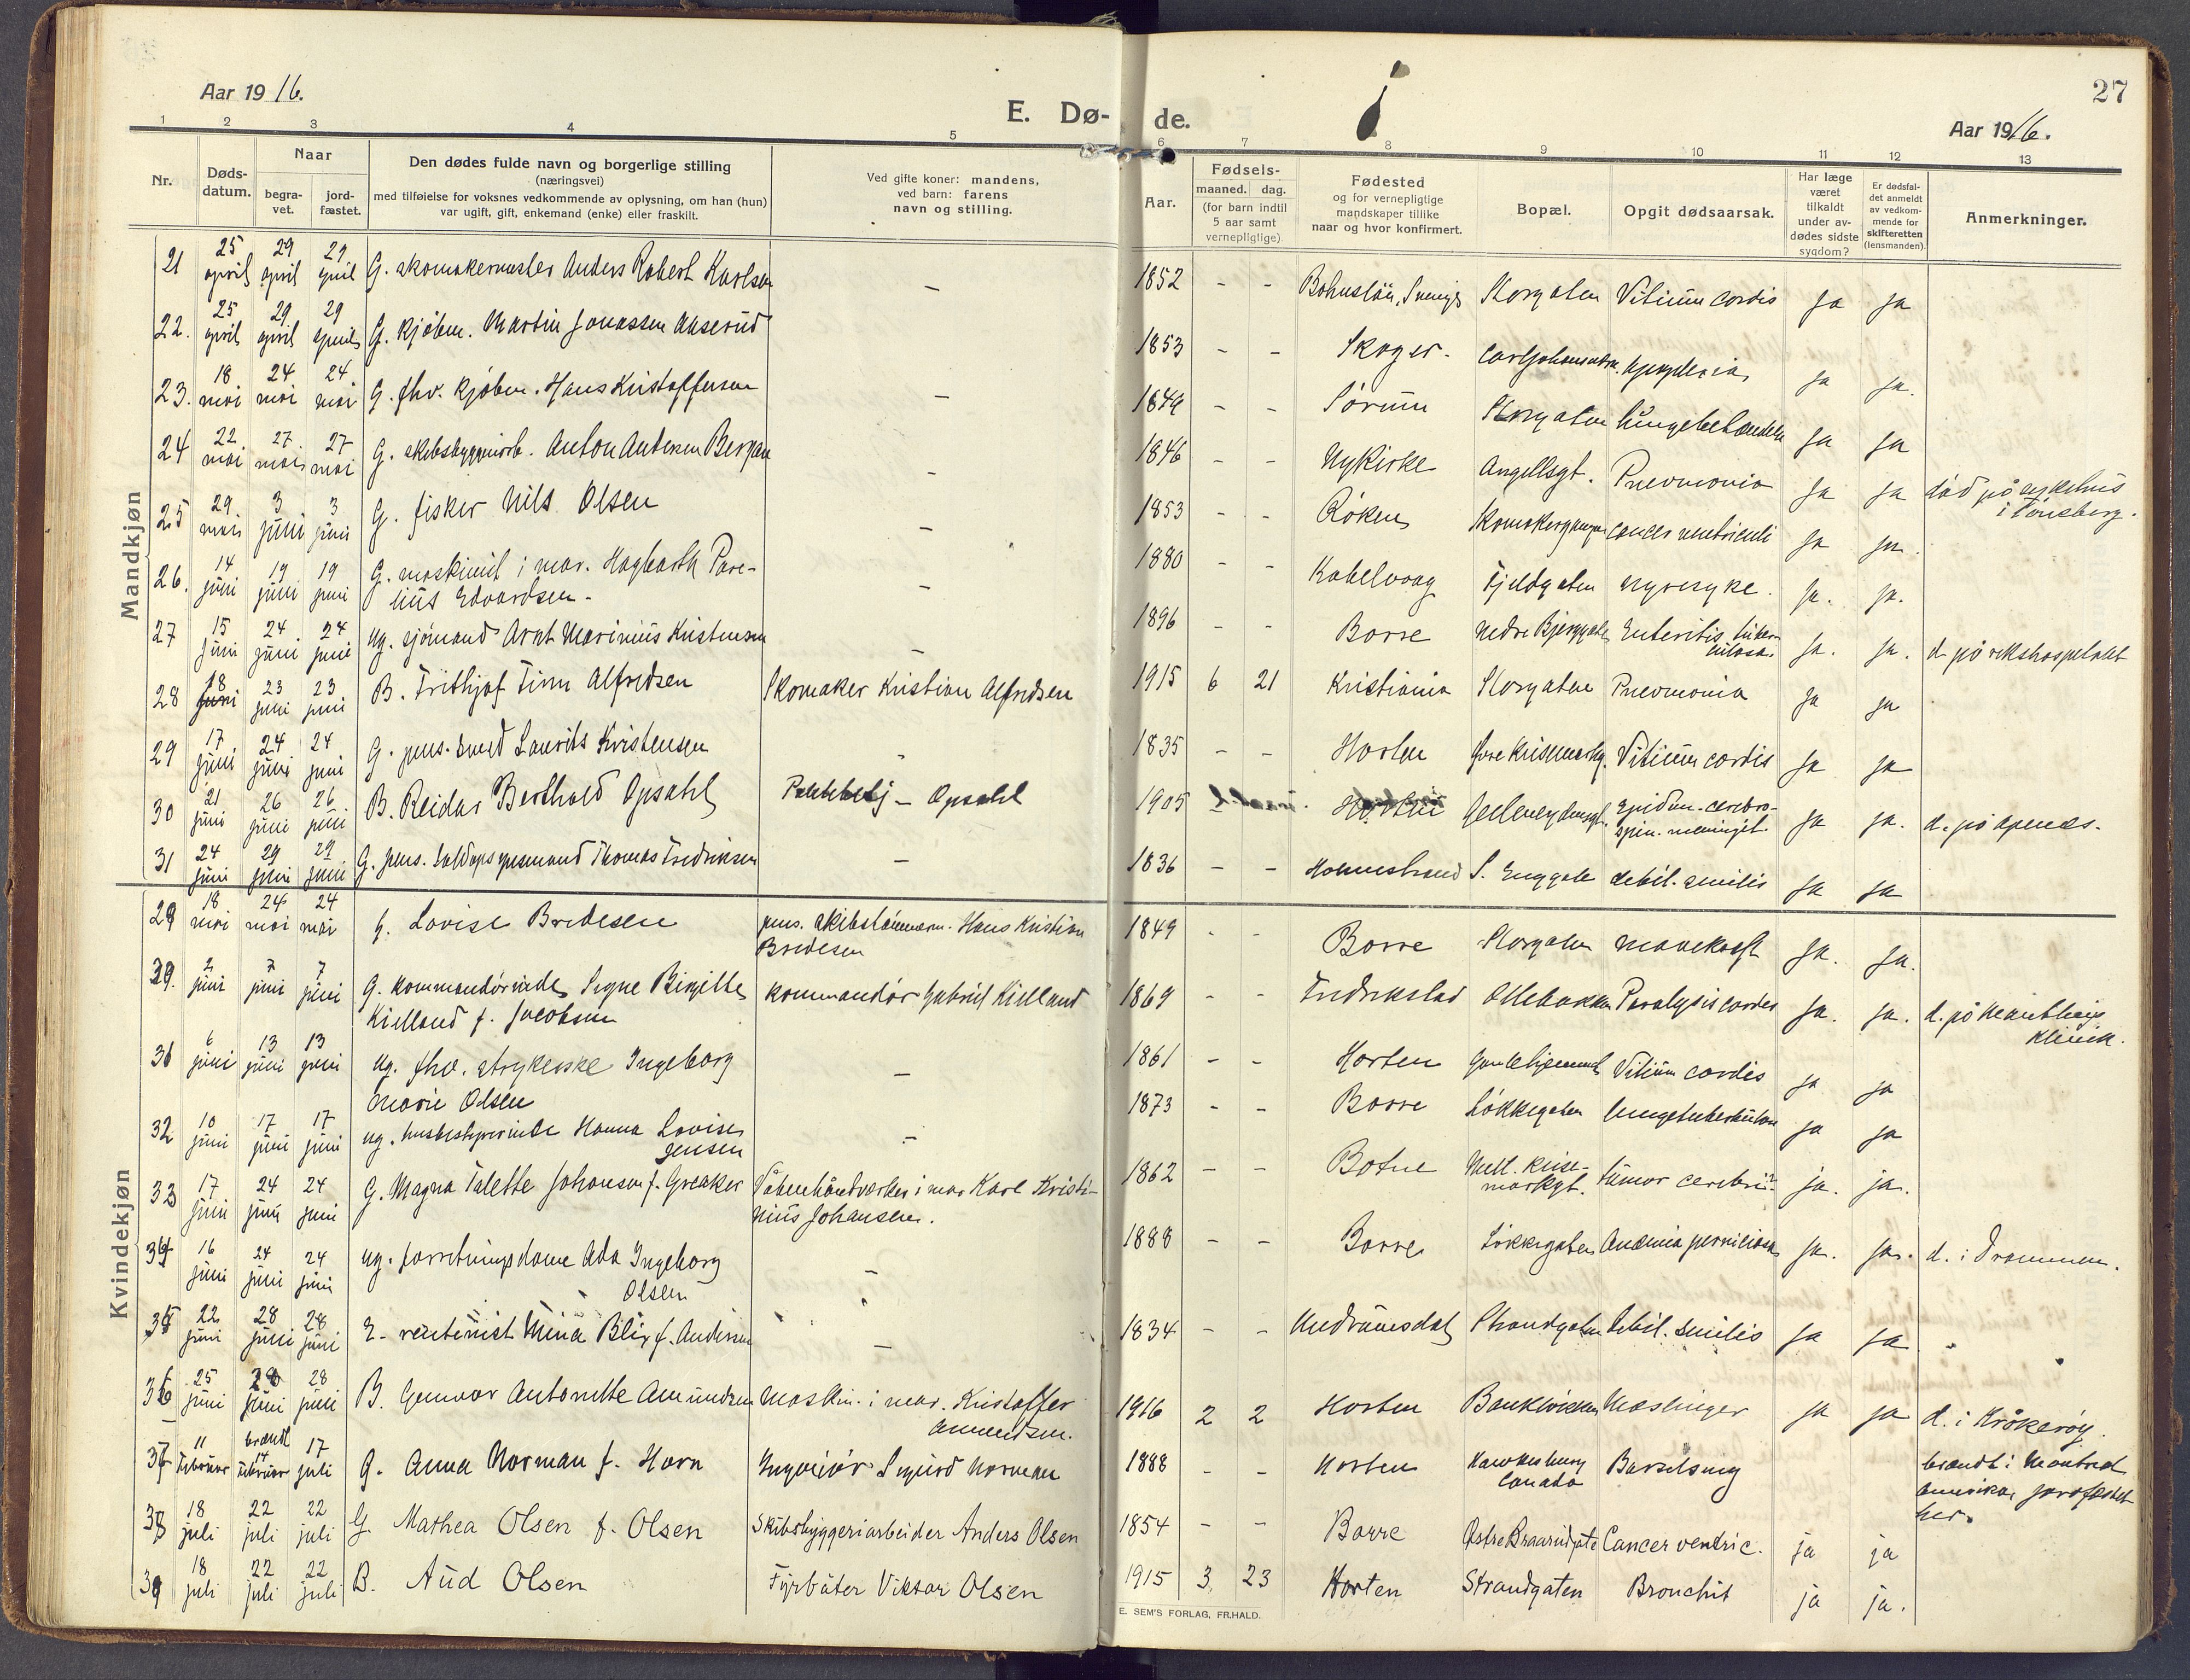 27
Aar 1916.
E. Dø- de.
Aar 1916.
1 2 3 4 5 6 7 8 9 10 11 12 13
Nr.
Døds-
datum.
Naar
begra-
vet.
jord-
fæstet.
Den dødes fulde navn og borgerlige stilling
(næringsvei)
med tilføielse for voksnes vedkommende av oplysning, om han (hun)
var ugift, gift, enkemand (enke) eller fraskilt.
Ved gifte koner: mandens,
ved barn: farens
navn og stilling.
Aar.
Fødsels-
maaned. dag.
(for barn indtil
5 aar samt
vernepligtige).
Fødested
og for vernepligtige
mandskaper tillike
naar og hvor konfirmert.
Bopæl.
Opgit dødsaarsak.
Har læge
været
tilkaldt
under av-
dødes sidste
sygdom?
Er dødsfal-
det anmeldt
av vedkom-
mende for
skifteretten
(lensmanden).
Anmerkninger.
Mandkjøn
21 25 april 29 april 29 april G. skomakermester Anders Robert Karlsen — 1852 - - Bohuslän, Sverige Storgaten Vitium cordis Ja Ja
22. 25 april 29 april 29 april G. kjøbm. Martin Jonassen 1853 - - Skoger. Ja Ja.
23. 18 mai 24 mai 24 mai G. fhv. kjøbm. Hans Kristoffersen — 1849 - - Sørum Storgaten Ja Ja
24 22 mai 27 mai 27 mai G. skibsbyggeriarb. Anton Andersen Bergan — 1846 - - Nykirke Angellsgt. Pneumonia Ja Ja død på sykehus
i Tønsberg.
25 29 mai 3 juni 3 juni G. fisker Nils Olsen — 1853 - - Røken cancer ventriculi Ja Ja.
26. 14 juni 19 juni 19 juni G. maskinist i mar. Hagbarth Pare-
lius Edvardsen — 1880 - - Kabelvaag Fjeldgaten nyresyke. Ja. Ja.
27 15 juni 24 juni 24 juni ug. sjømand Arnt Marinius Kristensen — 1896 - - Borre Nedre Enteritis tuber-
culosa. Ja. Ja. d. på rikshospitalet
28 18 juni 23 juni 23 juni B. Frithjof Finn Alfredsen Skomaker Kristian Alfredsen 1915 6 21 Kristiania Storgaten Pneumonia Ja Ja
29 17 juni 24 juni 24 juni G. pens. smed Laurits Kristensen - 1835 - - Horten Vitium cordis Ja Ja
30 21 juni 26 juni 26 juni B. Reidar Berthold Opsahl — Opsahl 1905 Horten Epidem. cerebro-
spin. meningit. Ja Ja. d. på
31 24 juni 29 juni 29 juni G. pens. Thomas Fredriksen — 1836 - - Holmestrand debil. senilis Ja Ja
Kvindekjøn
29 18 mai 24 mai 24 mai G. Lovise Bredesen pens. skibstømmerm. Hans Kristian
Bredesen 1849 - - Borre Storgaten mavekræft Ja. Ja.
30. 2 juni 7 juni 7 juni G. kommandørinde Signe Birgitte
Kielland f. Jacobsen kommandør Gabriel Kielland 1869 - - Fredrikstad Ollebakken Paralysis cordis Ja. Ja. d. på
klinik.
31 6 juni 13 juni 13 juni ug. fhv. strykerske Ingeborg
Marie Olsen — 1861 - - Horten Gamlehjemmet Vitium cordis Ja Ja
32 10 juni 17 juni 17 juni ug. husbestyrerinde Hanna Lovise
Jensen — 1873 - - Borre Løkkegaten Ja Ja
33 17 juni 24 juni 24 juni G. Magna Talette Johansen f. Greaker i mar. Karl Kristi-
nius Johansen. 1862 - - Botne tumor cerebri. ja. ja.
34 16 juni 24 juni 24 juni ug. forretningsdame Ada Ingeborg
Olsen — 1888 - - Borre Løkkegaten Anæmia perniciosa Ja. Ja. d. i Drammen.
35 22 juni 28 juni 28 juni E. rentenist Mina Blix f. Andersen — 1834 - - Gudbrandsdal Strandgaten debil. senilis Ja Ja
36 25 juni 28 juni 28 juni B. Gunvor Antonette Amundsen Maskin. i mar. Kristoffer
Amundsen. 1916 2 2 Horten Bankløkken Mæslinger Ja Ja d. i Kråkerøy.
37 11 Februar brændt 14 Februar 17 juli G. Anna Norman f. Horn Ingeniør Sigurd Norman 1888 - - Horten Hawkesbury
Canada Barselseng brændt i Montreal
Amerika, jordfæstet
her.
38 18 juli 22 juli 22 juli G. Mathea Olsen f. Olsen Skibsbyggeriarbeider Anders Olsen 1854 - - Borre Østre Braarudgate Cancer ventric. ja ja
39 18 juli 22 juli 22 juli B. Aud Olsen Fyrbøter Viktor Olsen 1915 3. 23 Horten Strandgaten Bronchit ja ja.
E. SEM'S FORLAG, FR.HALD.